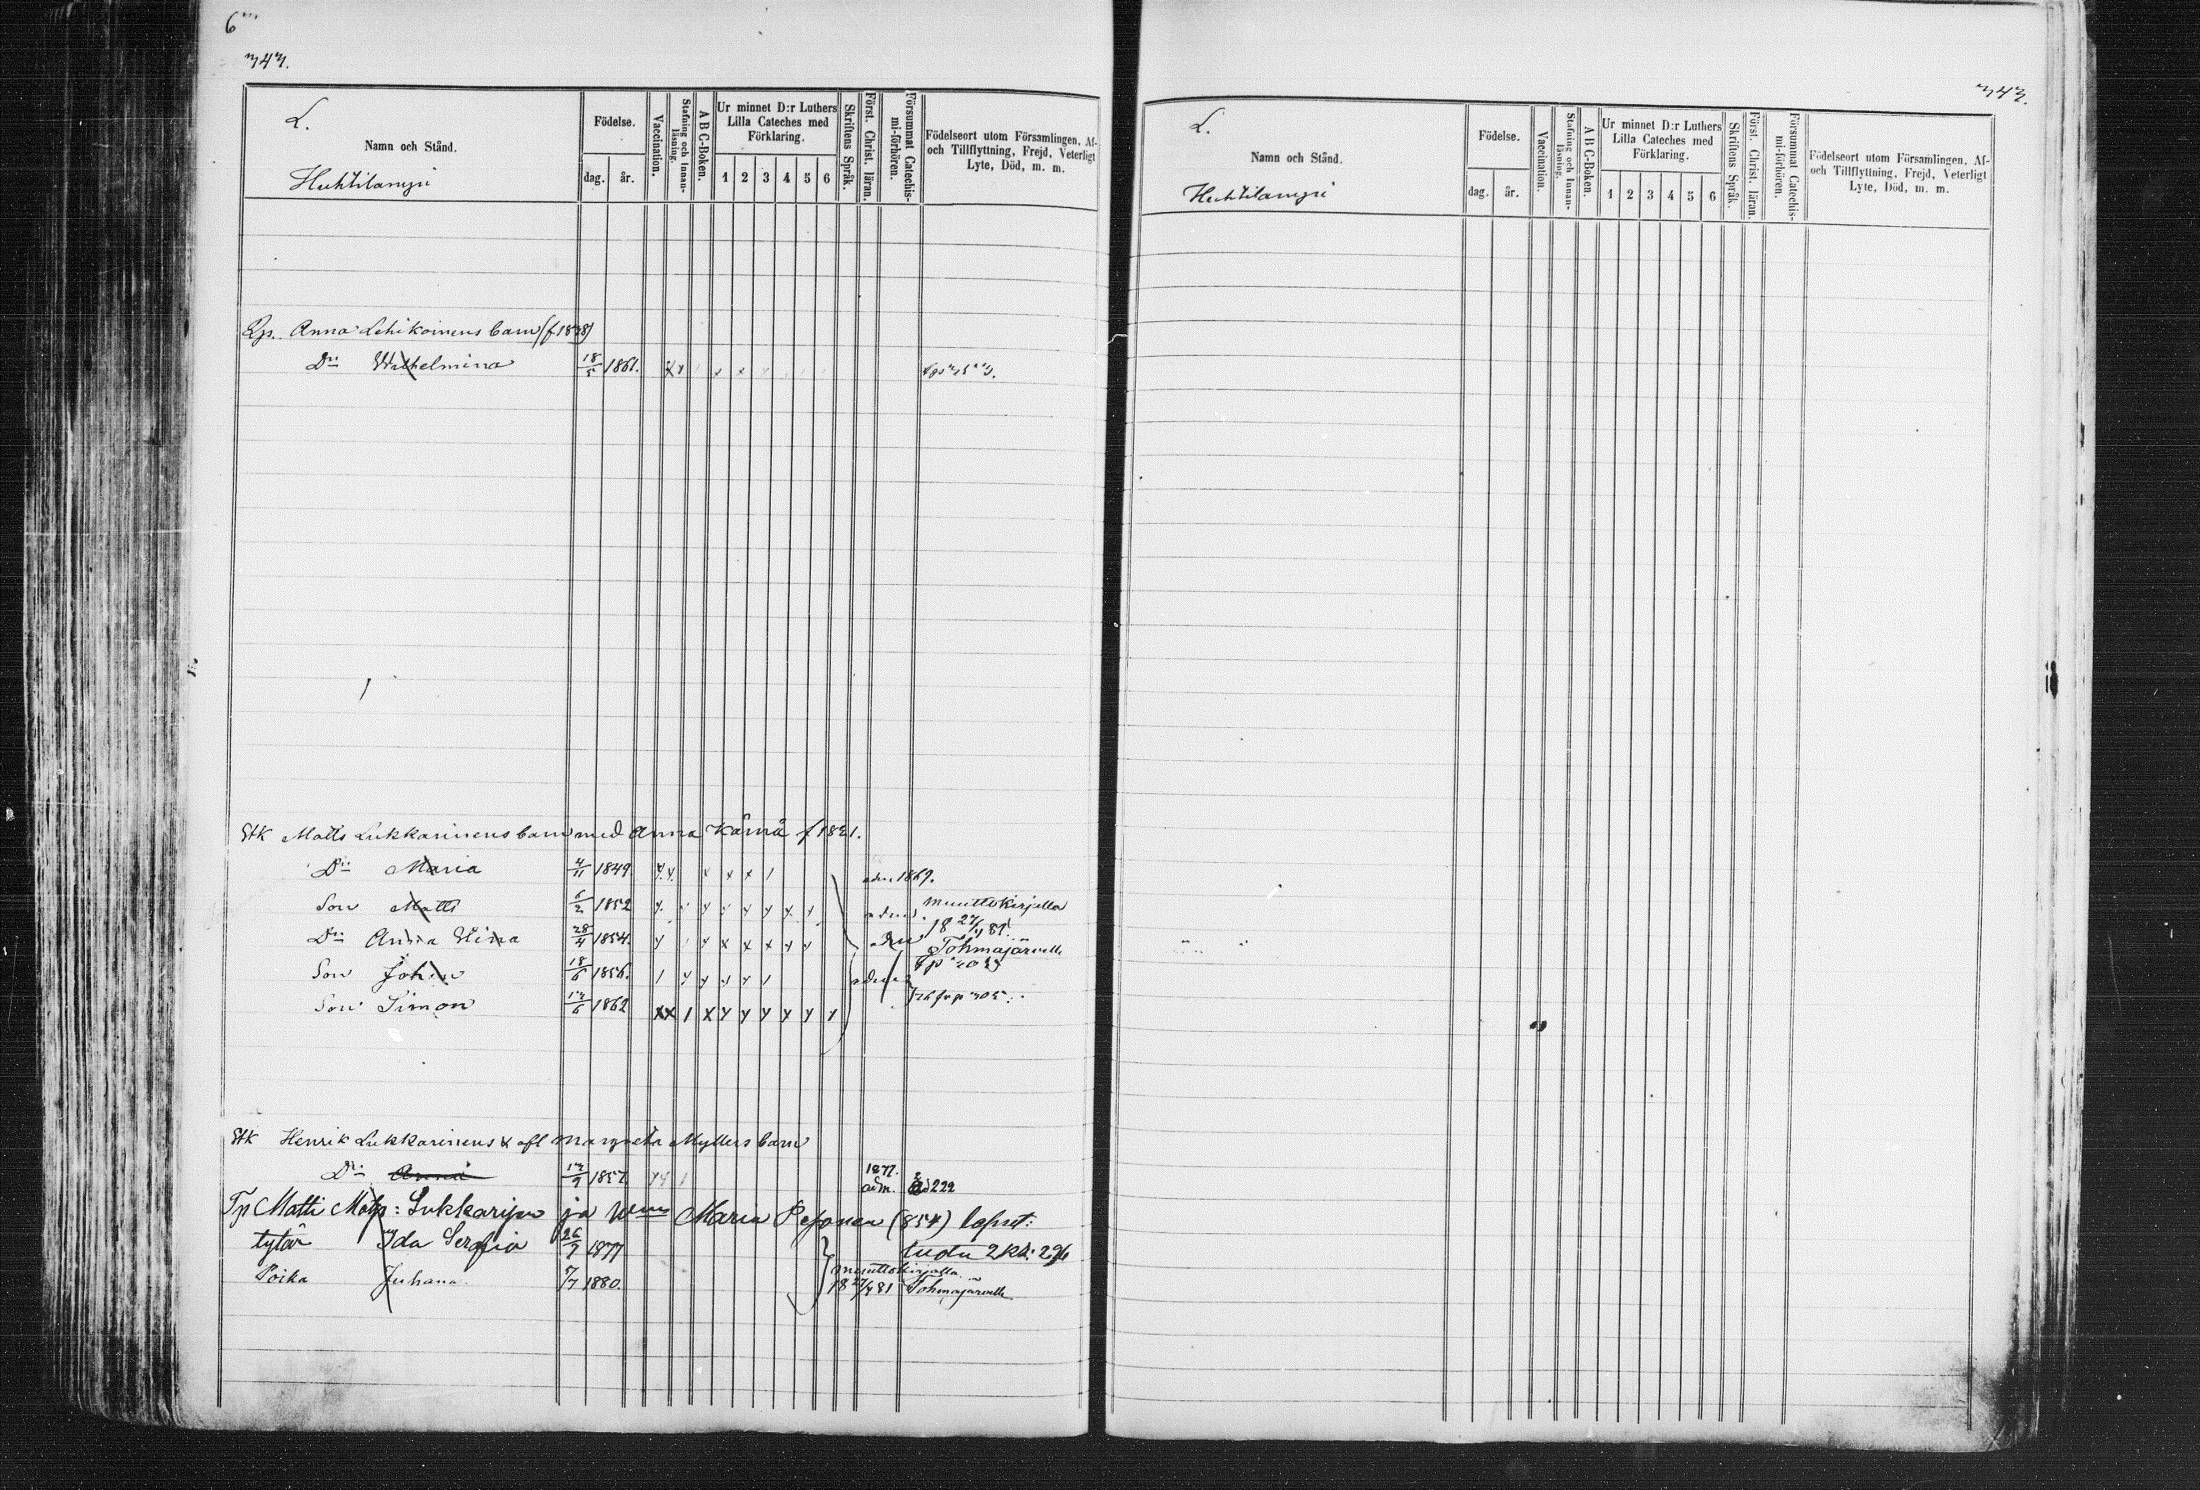 6
343.
L.
Namn och Stånd.
Huhtilampi
Födelse.
dag. år.
Vaccination.
Stafning och Innan-läsning.
A B C-Boken.
Ur minnet D:r Luthers
Lilla Cateches med
Förklaring.
1 2 3 4 5 6
Skriftens Språk.
Först. Christ. läran.
Försummat Catechis-mi-förhören.
Födelseort utom Församlingen, Af-
och Tillflyttning, Frejd, Veterligt
Lyte, Död, m. m.
Anna Lehikoinens barn (f 1838)
Dr Wilhelmina 18/5 1861.
Matts Lukkarinens barn med Anna Kärnä f 1821.
Dr Maria 4/11 1849. adm. 1869.
Son Matts 6/2 1852 adm. muuttokirjalla
Dr Anna Stina 28/4 1854. Tohmajärvelle
Son Johan 18/6 1856.
Son Simon 13/6 1862
Henrik Lukkarinens & afl Margreta Myllers barn
Dr Anna 13/9 1857. 1877. adm. 222
Matti Lukkarisen ja Maria Pesonen (854) lapset:
tytär Ida Serafia 26/9 1877
Poika Juhana 7/7 1880. muuttokirjalla
Tohmajärvelle
343.
L.
Namn och Stånd.
Huhtilampi
Födelse.
dag. år.
Vaccination.
Stafning och Innan-läsning.
A B C-Boken.
Ur minnet D:r Luthers
Lilla Cateches med
Förklaring.
1 2 3 4 5 6
Skriftens Språk.
Först. Christ. läran.
Försummat Catechis-mi-förhören.
Födelseort utom Församlingen, Af-
och Tillflyttning, Frejd, Veterligt
Lyte, Död, m. m.